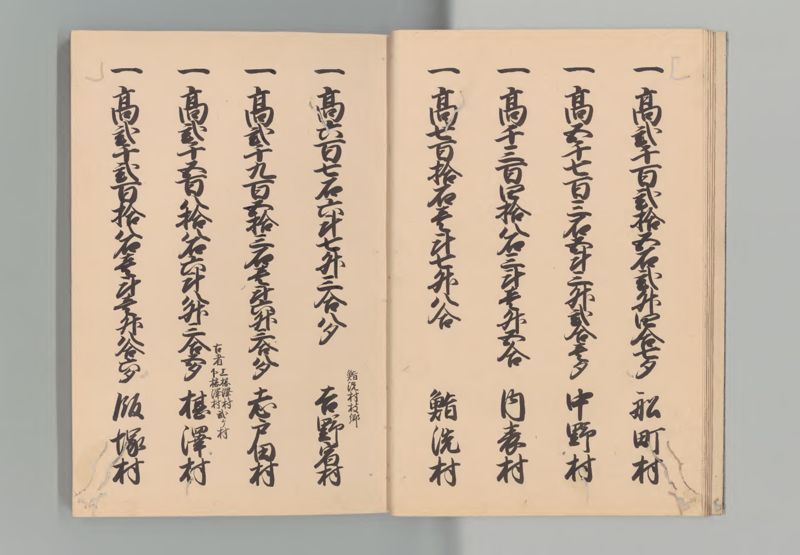 一高弐千百弐拾五石弐升四合七夕 船町村
一高五千七百三石五斗三升弐合壱夕 中野村
一高千三百四拾八石三斗壱升五合 内表村
一高七百拾石壱斗七升八合 鮨洗村
一高六百七石六斗七升三合八夕 吉野宿村
鮨洗村枝郷
一高弐千九百五拾三石壱斗四升三合八夕 志戸田村
一高弐千五百八拾八石六斗八升三合四夕 椹澤村
古者上椹澤村
下椹澤村弐ケ村
一高弐千弐百拾八石壱斗壱升八合四夕 飯塚村